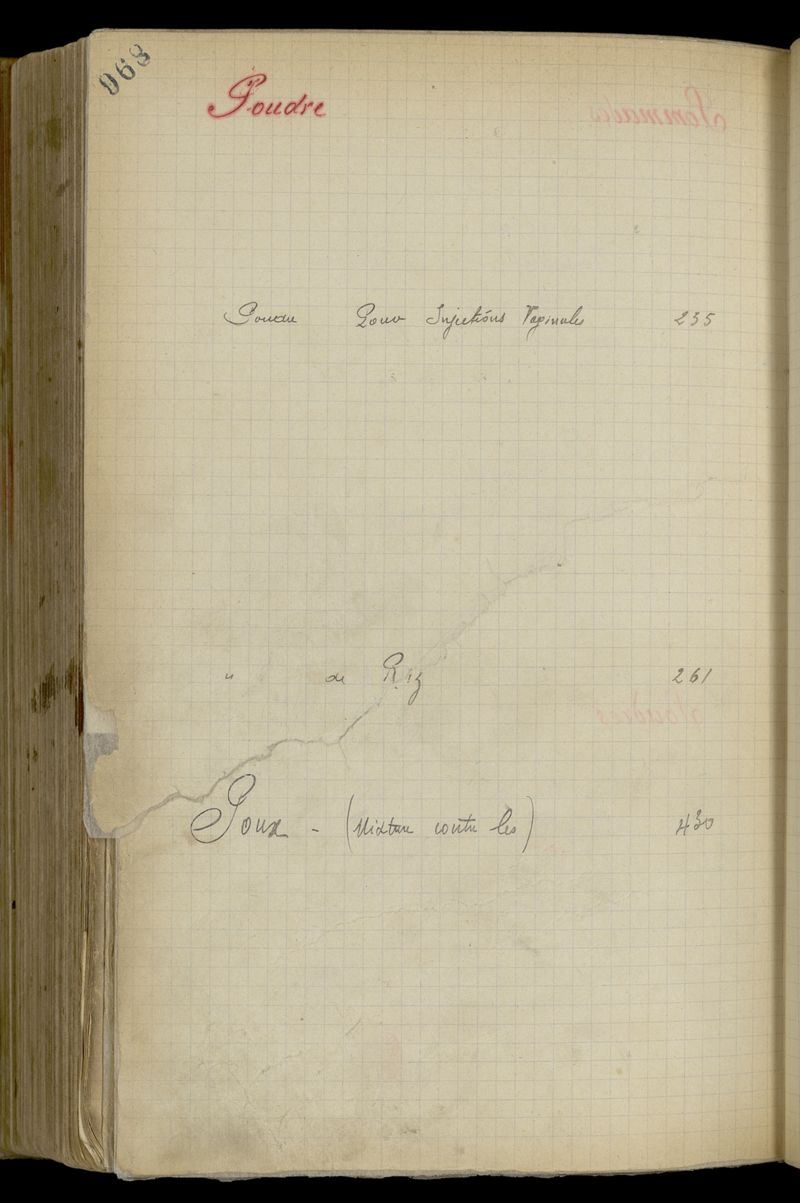 068
Poudre
Poudre Pour Injections Vaginales 235
" de Riz 261
Poux - (Mixture contre les) 430